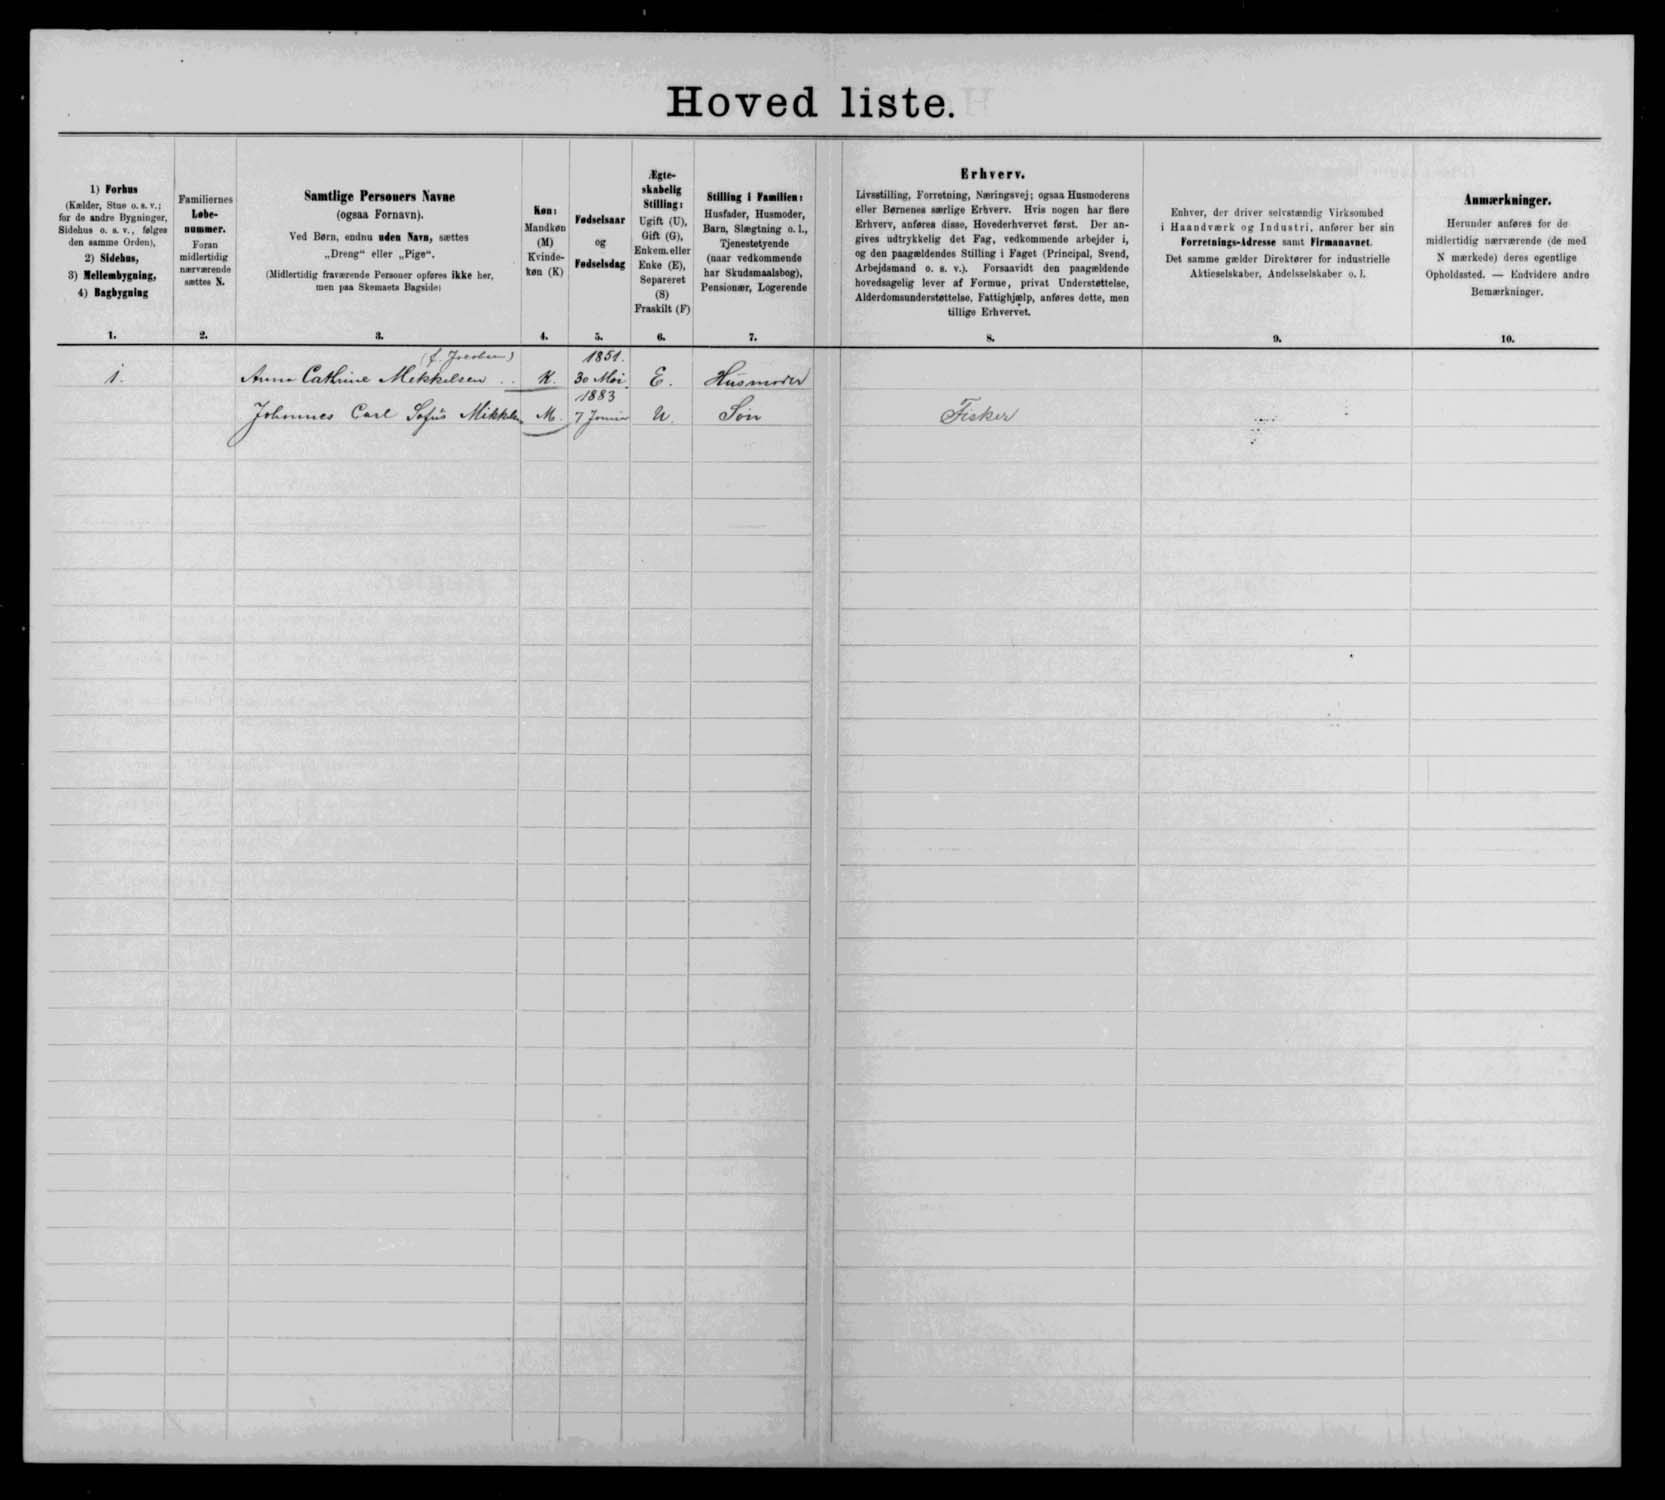 Hoved liste.
1) Forhus
(Kælder, Stue o. s. v.;
for de andre Bygninger,
Sidehus o. s. v., følges
den samme Orden),
2) Sidehus,
3) Mellembygning,
4) Bagbygning
Familiernes
Løbe-
nummer.
Foran
midlertidig
nærværende
sættes N.
Samtlige Personers Navne
(ogsaa Fornavn).
Ved Børn, endnu uden Navn, sættes
„Dreng“ eller „Pige“.
(Midlertidig fraværende Personer opføres ikke her,
men paa Skemaets Bagside)
Køn:
Mandkøn
(M)
Kvinde-
køn (K)
Fødselsaar
og
Fødselsdag
Ægte-
skabelig
Stilling:
Ugift (U),
Gift (G),
Enkem. eller
Enke (E),
Separeret
(S)
Fraskilt (F)
Stilling i Familien:
Husfader, Husmoder,
Barn, Slægtning o. l.,
Tjenestetyende
(naar vedkommende
har Skudsmaalsbog),
Pensionær, Logerende
Erhverv.
Livsstilling, Forretning, Næringsvej; ogsaa Husmoderens
eller Børnenes særlige Erhverv. Hvis nogen har flere
Erhverv, anføres disse, Hovederhvervet først. Der an-
gives udtrykkelig det Fag, vedkommende arbejder i,
og den paagældendes Stilling i Faget (Principal, Svend,
Arbejdsmand o. s. v.). Forsaavidt den paagældende
hovedsagelig lever af Formue, privat Understøttelse,
Alderdomsunderstøttelse, Fattighjælp, anføres dette, men
tillige Erhvervet.
Enhver, der driver selvstændig Virksomhed
i Haandværk og Industri, anfører her sin
Forretnings-Adresse samt Firmanavnet.
Det samme gælder Direktører for industrielle
Aktieselskaber, Andelsselskaber o. l.
Anmærkninger.
Herunder anføres for de
midlertidig nærværende (de med
N mærkede) deres egentlige
Opholdssted. — Endvidere andre
Bemærkninger.
1. 2. 3. 4. 5. 6. 7. 8. 9. 10.
(f. Jacobsen) 1851.
1. Anna Cathrine Mekkelsen K. 30 Mai. E. Husmoder
1883
Johannes Carl Sofus Mikkelsen M. 7 U. Søn Fisker